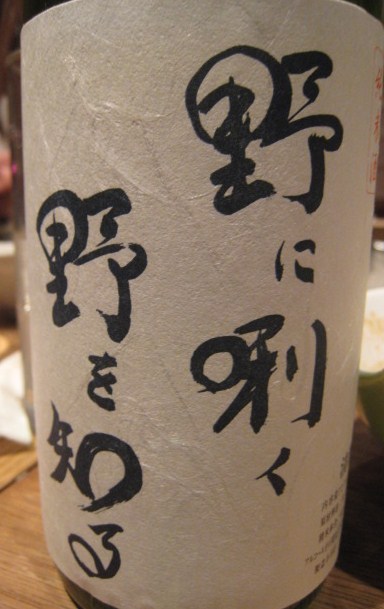 野に唎く
野を知る